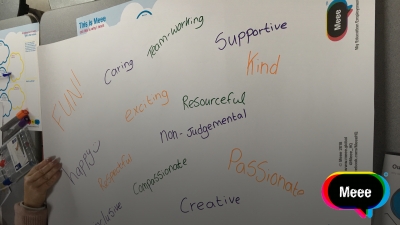 This is Meee
Team-working
Supportive
Caring
Kind
FUN!
exciting
Resourceful
Non-Judgemental
happy
Respectful
Compassionate
Passionate
Creative
Meee
Meee